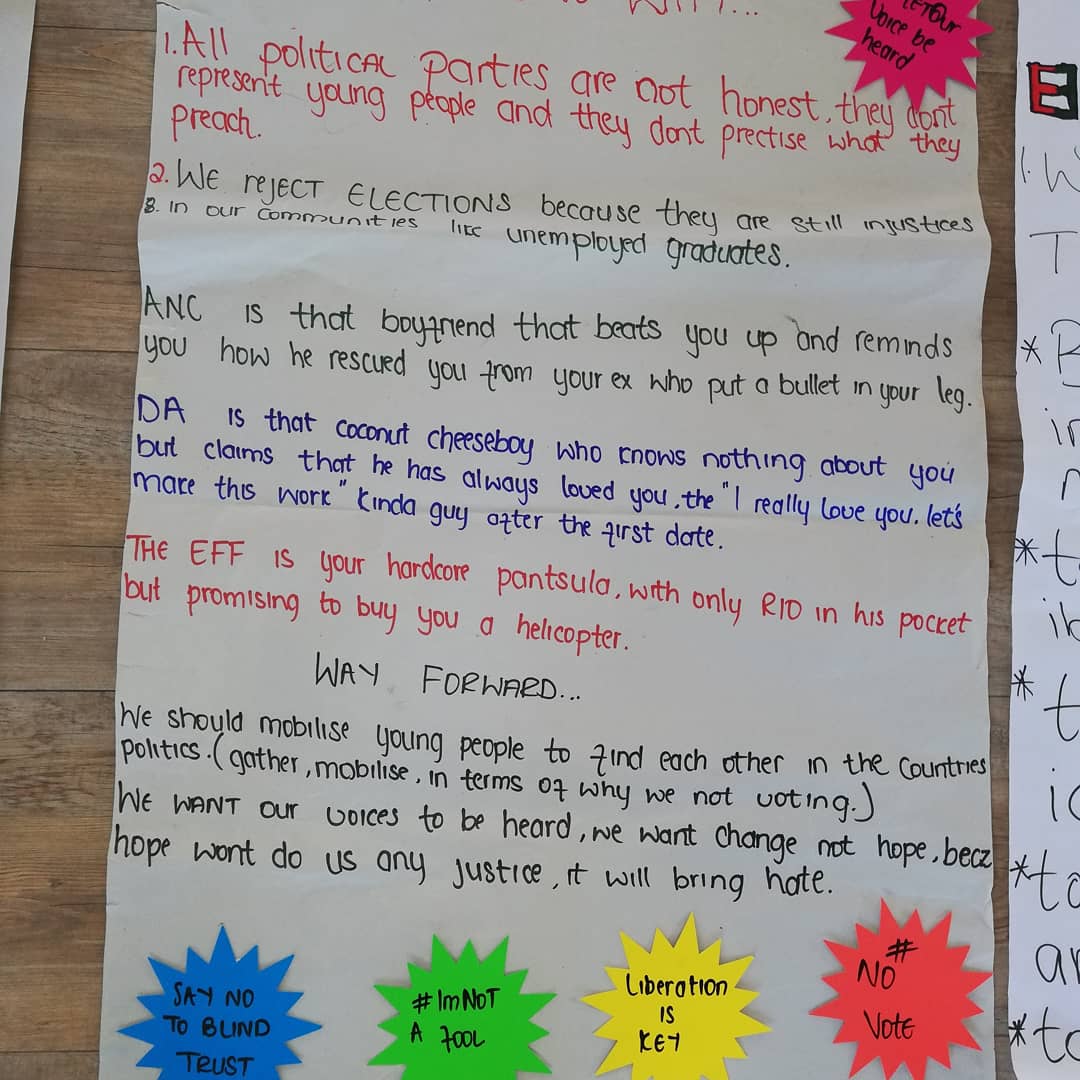 LET Our
Voice be
heard
1. All political Parties are not honest, they dont
represent young people and they dont prectise what they
preach.
2. WE reJECT ELECTIONS because they are still injustices
8. in our communities like unemployed graduates.
ANC is that boyfriend that beats you up and reminds
you how he rescued you from your ex who put a bullet in your leg.
DA is that coconut cheeseboy who knows nothing about you
but claims that he has always loved you, the "I really love you. let's
make this work" kinda guy after the first date.
THE EFF is your hardcore pantsula, with only R10 in his pocket
but promising to buy you a helicopter.
WAY FORWARD...
We should mobilise young people to find each other in the Countries
politics. (gather, mobilise, in terms of why we not voting.)
WE WANT our voices to be heard, we want change not hope, becz
hope wont do us any justice, it will bring hate.
SAY NO
TO BLIND
TRUST
#ImNoT
A fool
Liberation
IS
KEY
#
NO
Vote
E
1. W
T
* B
* t
* t
* to
* to